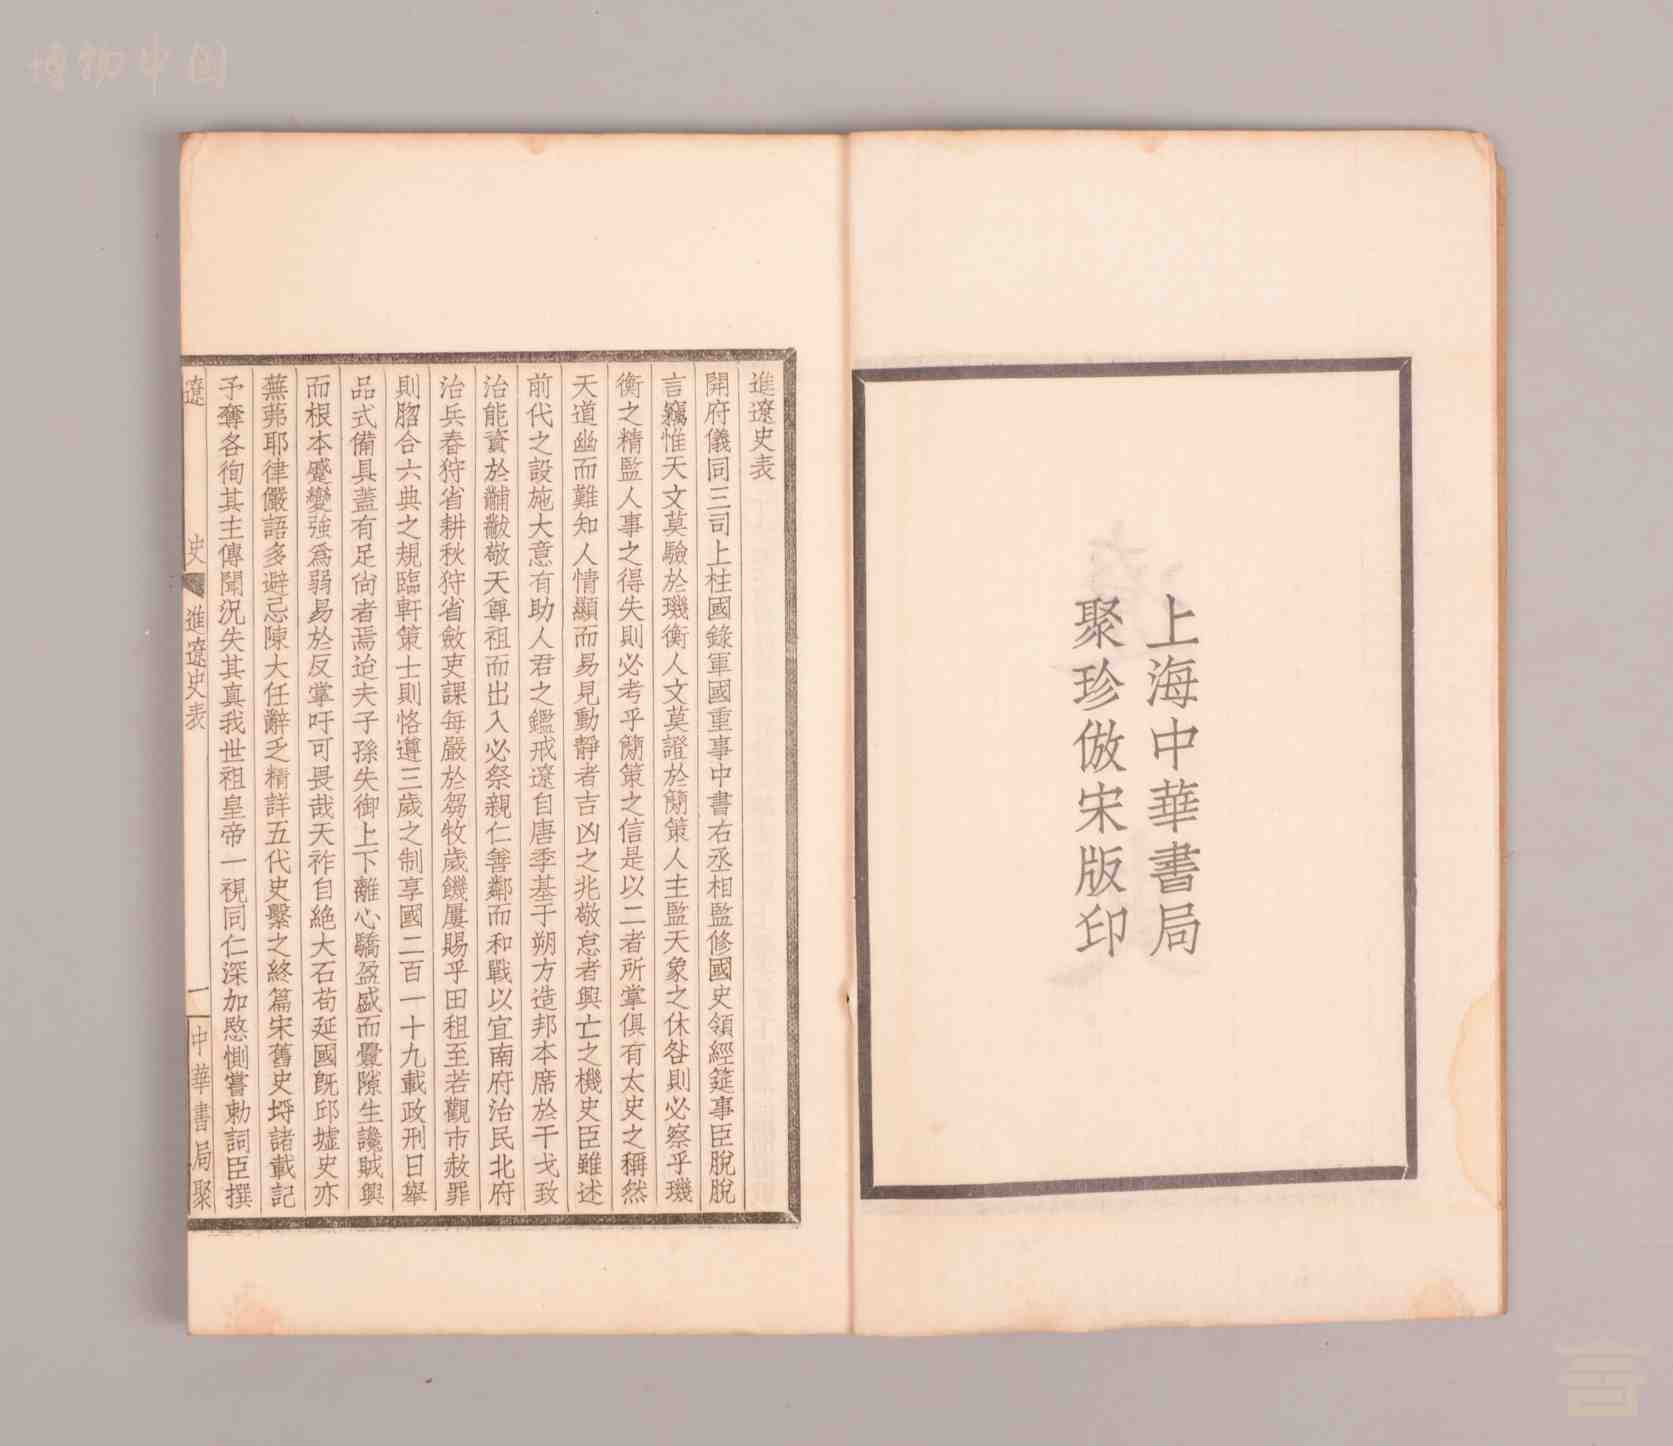 博物中国
上海中華書局
聚珍倣宋版印
進遼史表
開府儀同三司上柱國錄軍國重事中書右丞相監修國史領經筵事臣脫脫
言竊惟天文莫驗於璣衡人文莫證於簡策人主監天象之休咎則必察乎璣
衡之精監人事之得失則必考乎簡策之信是以二者所掌俱有太史之稱然
天道幽而難知人情顯而易見動靜者吉凶之兆敬怠者興亡之機史臣雖述
前代之設施大意有助人君之鑑戒遼自唐季基于朔方造邦本席於干戈致
治能資於黼黻敬天尊祖而出入必祭親仁善鄰而和戰以宜南府治民北府
治兵春狩省耕秋狩省斂吏課每嚴於芻牧歲饑屢賜乎田租至若觀市赦罪
則脗合六典之規臨軒策士則恪遵三歲之制享國二百一十九載政刑日舉
品式備具蓋有足尙者焉迨夫子孫失御上下離心驕盈盛而釁隙生讒賊興
而根本蹙變強爲弱易於反掌吁可畏哉天祚自絕大石苟延國旣邱墟史亦
蕪茀耶律儼語多避忌陳大任辭乏精詳五代史繫之終篇宋舊史埒諸載記
予奪各徇其主傳聞況失其真我世祖皇帝一視同仁深加愍惻嘗勅詞臣撰
遼史
進遼史表
一
中華書局聚